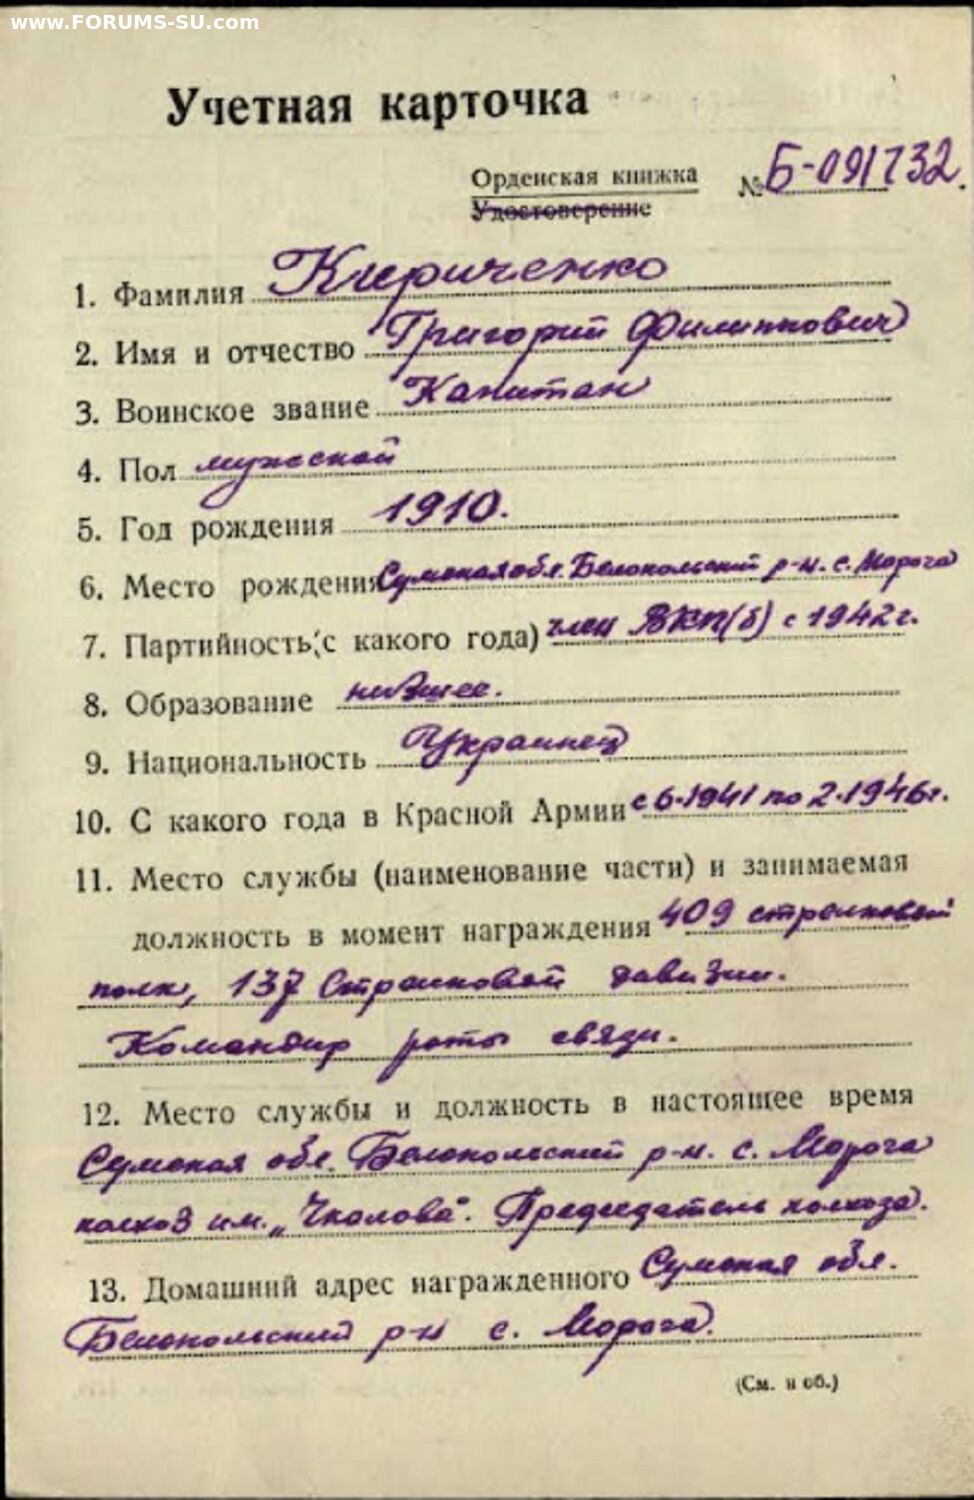 www.FORUMS-SU.com
Учетная карточка
Орденская книжка № Б-091732.
Удостоверение
1. Фамилия Кириченко
2. Имя и отчество Григорий Филиппович
3. Воинское звание Капитан
4. Пол мужской
5. Год рождения 1910.
6. Место рождения Сумская обл. Белопольский р-н. с. Мороча
7. Партийность (с какого года) член ВКП(б) с 1942 г.
8. Образование низшее.
9. Национальность Украинец
10. С какого года в Красной Армии с 6.1941 по 2.1946г.
11. Место службы (наименование части) и занимаемая
должность в момент награждения 409 стрелковый
полк, 137 Стрелковой дивизии.
Командир роты связи.
12. Место службы и должность в настоящее время
Сумская обл. Белопольский р-н. с. Мороча
колхоз им. „Чкалова". Председатель колхоза.
13. Домашний адрес награжденного Сумская обл.
Белопольский р-н с. Мороча.
(См. н об.)